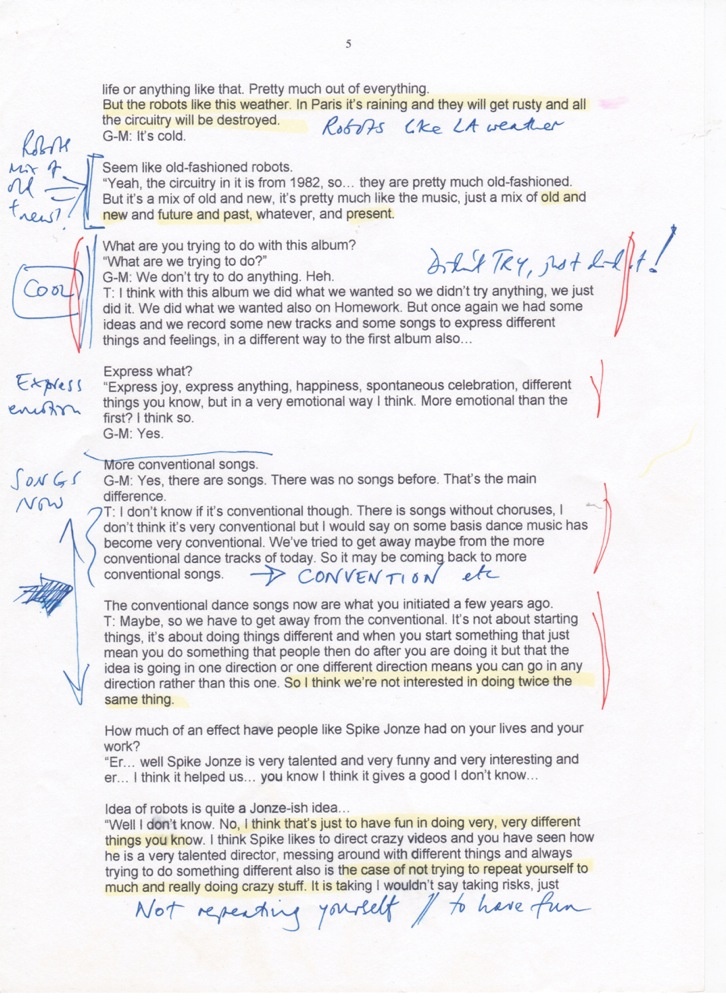 5
life or anything like that. Pretty much out of everything.
But the robots like this weather. In Paris it's raining and they will get rusty and all
the circuitry will be destroyed.
G-M: It's cold.
Robots like LA weather
Robots
mix of
old
+ news?
Seem like old-fashioned robots.
"Yeah, the circuitry in it is from 1982, so… they are pretty much old-fashioned.
But it's a mix of old and new, it's pretty much like the music, just a mix of old and
new and future and past, whatever, and present.
What are you trying to do with this album?
"What are we trying to do?"
G-M: We don't try to do anything. Heh.
Didn't TRY, just did it!
COOL
T: I think with this album we did what we wanted so we didn't try anything, we just
did it. We did what we wanted also on Homework. But once again we had some
ideas and we record some new tracks and some songs to express different
things and feelings, in a different way to the first album also…
Express
emotion
Express what?
"Express joy, express anything, happiness, spontaneous celebration, different
things you know, but in a very emotional way I think. More emotional than the
first? I think so.
G-M: Yes.
SONGS
NOW
More conventional songs.
G-M: Yes, there are songs. There was no songs before. That's the main
difference.
T: I don't know if it's conventional though. There is songs without choruses, I
don't think it's very conventional but I would say on some basis dance music has
become very conventional. We've tried to get away maybe from the more
conventional dance tracks of today. So it may be coming back to more
conventional songs.
→ CONVENTION etc
The conventional dance songs now are what you initiated a few years ago.
T: Maybe, so we have to get away from the conventional. It's not about starting
things, it's about doing things different and when you start something that just
mean you do something that people then do after you are doing it but that the
idea is going in one direction or one different direction means you can go in any
direction rather than this one. So I think we're not interested in doing twice the
same thing.
How much of an effect have people like Spike Jonze had on your lives and your
work?
"Er… well Spike Jonze is very talented and very funny and very interesting and
er… I think it helped us… you know I think it gives a good I don't know…
Idea of robots is quite a Jonze-ish idea…
"Well I don't know. No, I think that's just to have fun in doing very, very different
things you know. I think Spike likes to direct crazy videos and you have seen how
he is a very talented director, messing around with different things and always
trying to do something different also is the case of not trying to repeat yourself to
much and really doing crazy stuff. It is taking I wouldn't say taking risks, just
Not repeating yourself // to have fun